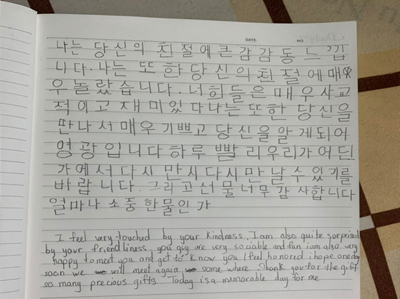 나는 당신의 친절에 큰 감감동 느낍
니다. 나는 또한 당신의 친절에 매
우 놀랐습니다. 너희들은 매우 사교
적이고 재미있다 나는 또한 당신을
만나서 매우 기쁘고 당신을 알게 되어
영광입니다 하루 빨리 우리가 어딘
가에서 다시 만시 다시 만날 수 있기를
바랍니다. 그리고 선물 너무 감사합니다
얼마나 소중한 물인가
I feel very touched by your kindness, I am also quite surprised
by your friendliness, you guy are very sociable and fun, i am also very
happy to meet you and get to know you, I feel honored, i hope one day
soon we will meet again some where. Thank you for the gifts
so many precious gifts. Today is a memorable day for me